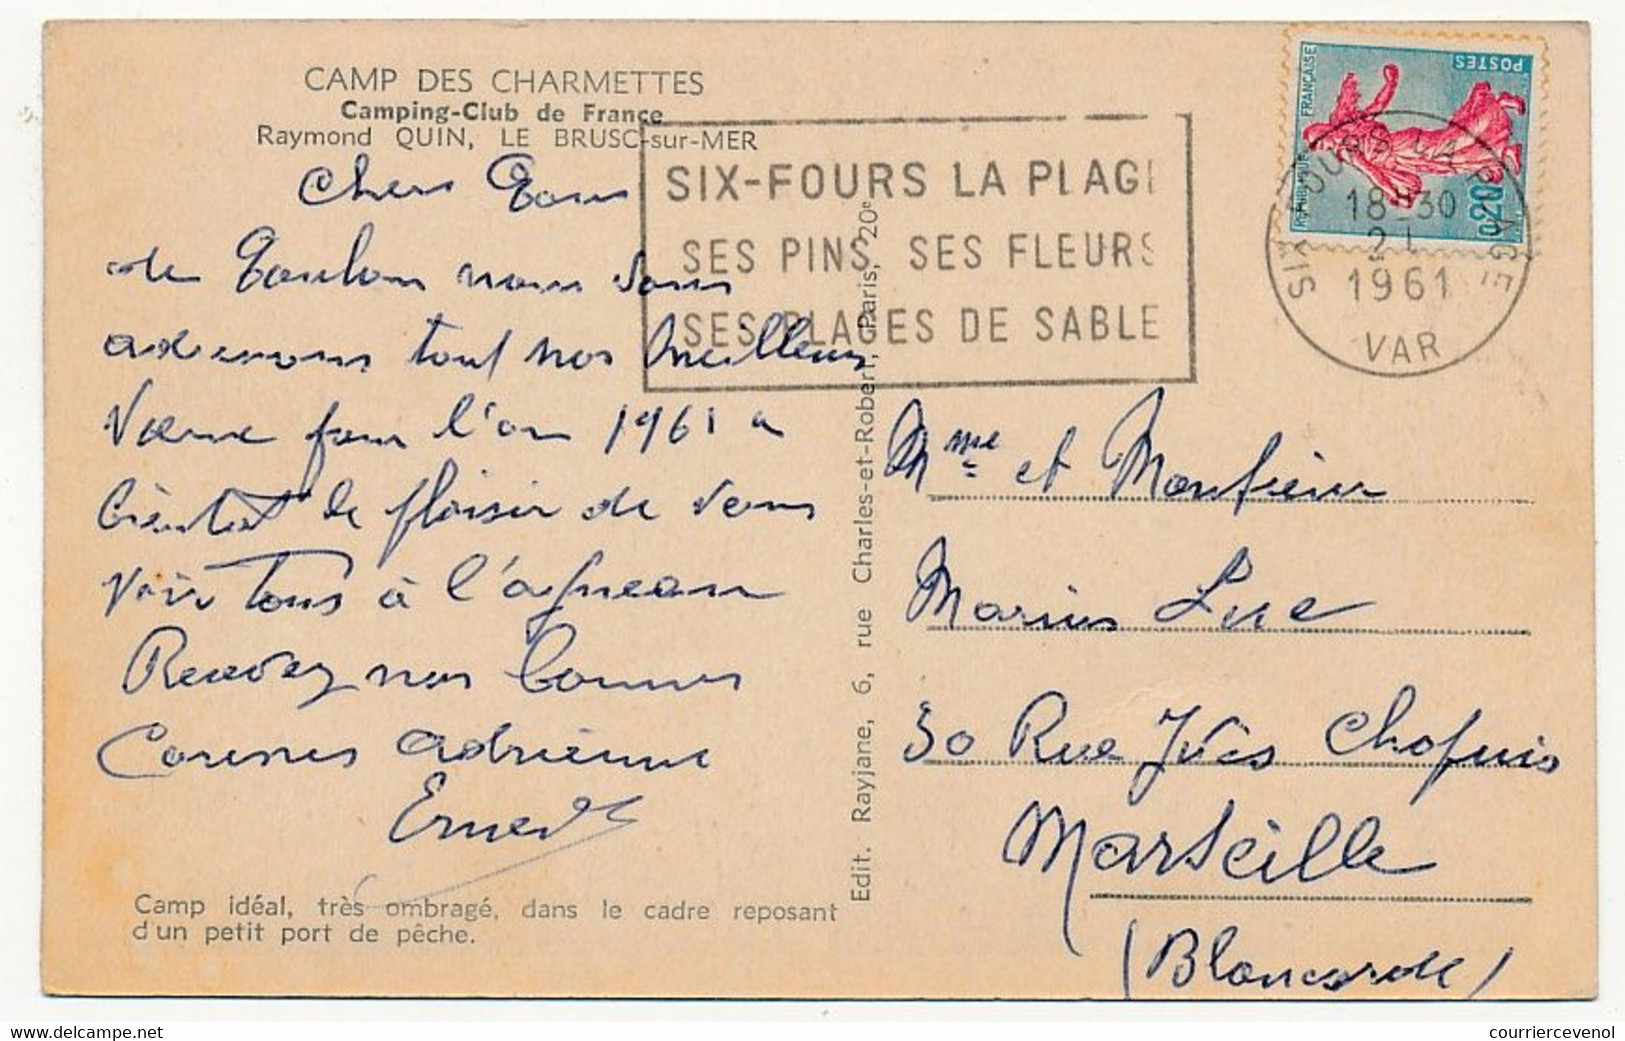 CAMP DES CHARMETTES
Camping-Club de France
Raymond QUIN, LE BRUSC-sur-MER
Chers Tous
de Toulon nous vous
adressons tout nos meilleurs
Vœux pour l'an 1961 a
bientot le plaisir de vous
voir tous à l'agneau
Recevez nos bonnes
Caresses Adrienne
Ernest
Camp idéal, très ombragé, dans le cadre reposant
d'un petit port de pêche.
Edit. Rayjane, 6, rue Charles-et-Robert, Paris, 20e
SIX-FOURS LA PLAGE
SES PINS SES FLEURS
SES PLAGES DE SABLE
REPUBLIQUE FRANÇAISE
POSTES
0,20
SIX FOURS LA PLAGE
18-30
2 1
1961
VAR
Mme et Monsieur
Marius Luc
30 Rue Yves Chapuis
Marseille
(Blancarde)
courriercevenol